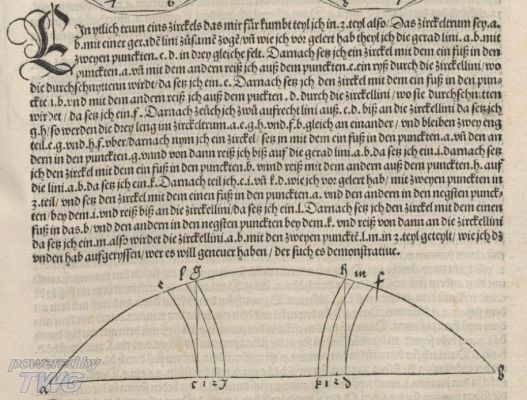 Ein ytlich trum eins zirckels das mir für kumbt teyl jch in .3. teyl also / Das zirckeltrum sey .a.
b. mit einer geradē lini zůsamē zogē / vn̄ wie jch vor gelert hab theyl jch die gerad lini .a.b. mit
zweyen punckten .c.d. in drey gleiche felt. Darnach setz jch ein zirckel mit dem ein fuß in den
punckten .a. vn̄ mit dem andern reiß jch auß dem punckten .c. ein ryß durch die zirckellini / wo
die durchschnytten wirdt / da setz jch ein .e. Darnach setz jch den zirckel mit dem ein fuß in den pun-
ckte .b. vnd mit dem andern reiß jch auß dem puckten .d. durch die zirckellini / wo sie durchschnitten
wirdet / da setz jch ein .f. Darnach zeüch jch zwů aufrecht lini auß .c.d. biß an die zirckellini da setz jch
g.h / so werden die drey leng im zirckeltrum .a.e.g.h. vnd .f.b. gleich an einander / vnd bleiben zwey eng
teil .e.g. vnd .h.f. vber / darnach nym jch ein zirckel / setz in mit dem ein fuß in den puncten .a. vn̄ den an
dern in den punckten .g. vnnd von dann reiß jch biß auf die gerad lini .a.b. da setz jch ein .i. darnach setz
jch den zirckel mit dem ein fuß in den punckten .b. vnnd reiß mit dem andern auß dem puncten .h. auf
die lini .a.b. da setz jch ein .k. Darnach teil jch .c.i. vn̄ .k.d. wie jch vor gelert hab / mit zweyen puncten in
3. teil / vnd setz den zirckel mit dem einen fuß in den puncten .a. vnd den andern in den negsten punck-
ten / bey dem .i. vnd reiß biß an die zirckellini / da setz jch ein .l. Darnach setz jch den zirckel mit dem einen
fuß in das .b / vnd den andern in den negsten puncten bey dem .k. vnd reiß von dann an die zirckellini
da setz jch ein .m. also wirdet die zirckellini .a.b. mit den zweyen punctē .l.m. in 3. teyl geteylt / wie jch dz
vnden hab aufgeryssen / wer es will geneuer haben / der such es demonstratiue.
e l g h m f
a c 1 2 i k 1 2 d b
powered by
TWG